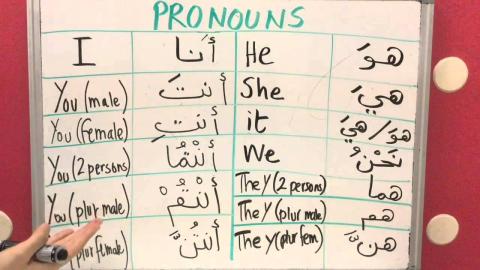 PRONOUNS
I أَنَا He هوَ
You (male) أنتَ She هيَ
You (female) أنتِ it هوَ/هيَ
You (2 persons) أَنْتُمَا We نَحْنُ
You (plur male) أَنْتُمْ They (2 persons) هما
They (plur male) هم
plur female) أَنتُنَّ They (plur fem) هنَّ